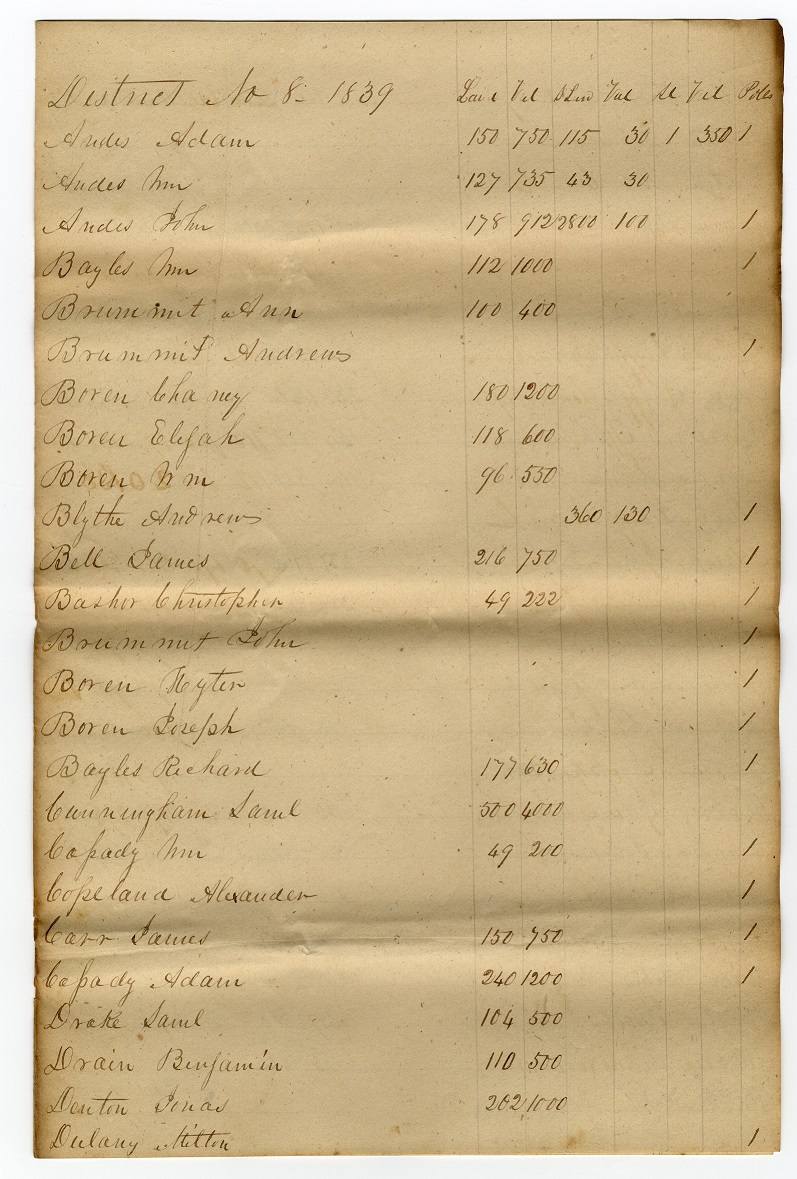 District No 8- 1839 Land Val SLnd Val Sl Val Poles
Andes Adam 150 750 115 30 1 350 1
Andes Wm 127 735 43 30
Andes John 178 912 2800 100 1
Bayles Wm 112 1000 1
Brummit Ann 100 400
Brummit Andrew 1
Boren Chaney 180 1200
Boren Elijah 118 600
Boren Wm 96 550
Blythe Andrew 360 130 1
Bell James 216 750 1
Bashor Christopher 49 222 1
Brummit John 1
Boren Hyter 1
Boren Joseph 1
Bayles Richard 177 630 1
Cunningham Saml 500 4000
Caßady Wm 49 200 1
Copeland Alexander 1
Carr James 150 750 1
Caßady Adam 240 1200 1
Drake Saml 104 500
Drain Benjamin 110 500
Denton Jonas 202 1000
Dulany Milton 1